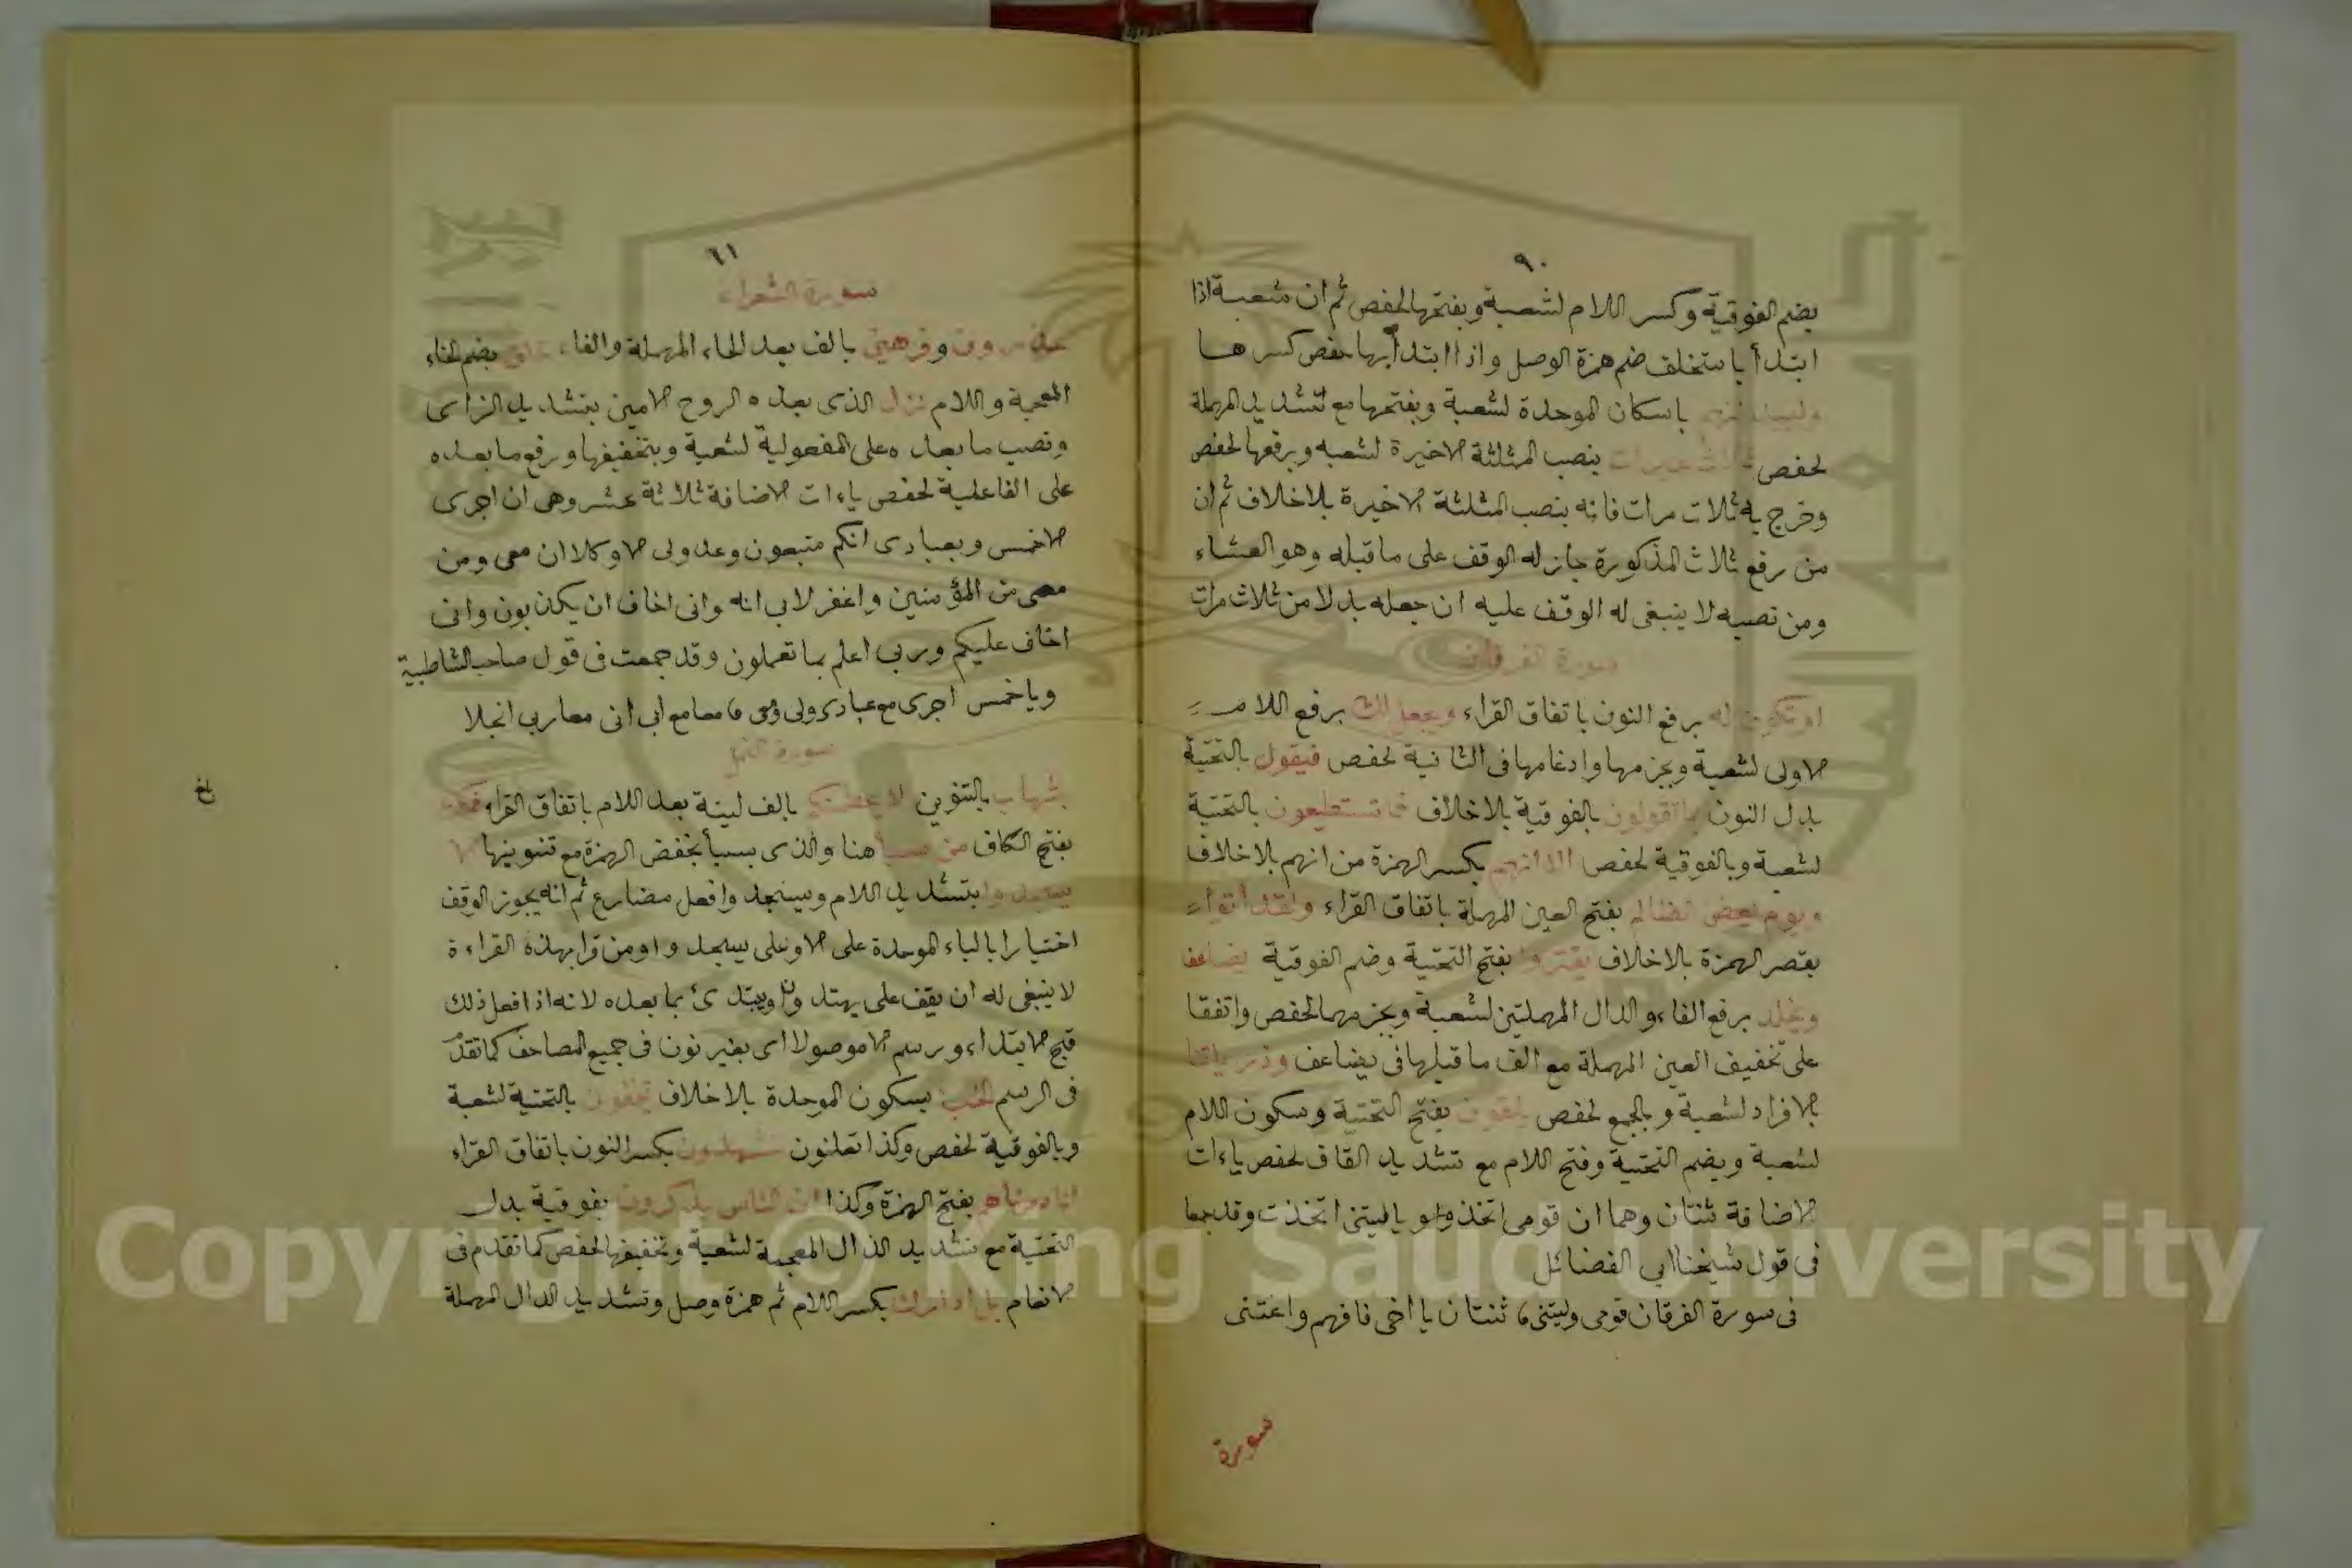 ٩٠
بضم الفوقية وكسر اللام لشعبة وبفتحها لحفص ثم ان شعبة اذا
ابتدأ باستخلف ضم همزة الوصل واذا ابتدأ بها حفص كسرها
وليبدلنهم باسكان الموحدة لشعبة وبفتحها مع تشديد المهملة
لحفص ثلاث عورات بنصب المثلثة الاخيرة لشعبه وبرفعها لحفص
وخرج به ثلاث مرات فانه بنصب المثلثة الاخيرة بلا خلاف ثم ان
من رفع ثلاث المذكورة جاز له الوقف على ما قبله وهو العشاء
ومن نصبه لا ينبغى له الوقف عليه ان جعله بدلا من ثلاث مرات
سورة الفرقان
او تكون له برفع النون باتفاق القراء ويجعل لك برفع اللام
الاولى لشعبة وبجزمها وادغامها فى الثانية لحفص فيقول بالتحتية
بدل النون بما تقولون بالفوقية بلا خلاف فما تستطيعون بالتحتية
لشعبة وبالفوقية لحفص الا انهم بكسر الهمزة من انهم بلا خلاف
ويوم يعض الظالم بفتح العين المهملة باتفاق القراء ولقد أتوا
بقصر الهمزة بلا خلاف يقتروا بفتح التحتية وضم الفوقية يضاعف
ويخلد برفع الفاء والدال المهملتين لشعبة وبجزمهما لحفص واتفقا
على تخفيف العين المهملة مع الف ما قبلها فى يضاعف وذرياتنا
بالافراد لشعبة وبالجمع لحفص يلقون بفتح التحتية وسكون اللام
لشعبة وبضم التحتية وفتح اللام مع تشديد القاف لحفص ياءات
الاضافة ثنتان وهما ان قومى اتخذوا و يا ليتنى اتخذت وقد جمعا
فى قول شيخنا ابى الفضائل
فى سورة الفرقان قومى وليتنى ثنتان يا اخى فافهم واعتنى
سورة
٦١
سورة الشعراء
حاذرون وفرهين بالف بعد الحاء المهملة والفاء خلق بضم الخاء
المعجمة واللام نزل الذى بعده الروح الامين بتشديد الزاى
ونصب ما بعده على المفعولية لشعبة وبتخفيفها ورفع ما بعده
على الفاعلية لحفص ياءات الاضافة ثلاثة عشر وهى ان اجرى
الخمس وبعبادى انكم متبعون وعدو لى الا وكلا ان معى ومن
معى من المؤمنين واغفر لابى انه وانى اخاف ان يكذبون وانى
اخاف عليكم وربى اعلم بما تعملون وقد جمعت فى قول صاحب الشاطبية
ويا خمس اجرى مع عبادى ولى معى معا مع ابى انى معا ربى انجلا
سورة النمل
بشهاب بالتنوين لا يحطمنكم بالف لينة بعد اللام باتفاق القراء فمكث
بفتح الكاف من سبأ هنا والذى بسبأ بخفض الهمزة مع تنوينها الا
يسجدوا بتشديد اللام ويسجدوا فعل مضارع ثم انه يجوز الوقف
اختيارا بالباء الموحدة على الا وعلى يسجدوا ومن قرا بهذه القراءة
لا ينبغى له ان يقف على يهتدون ويبتدئ بما بعده لانه اذا فعل ذلك
قبح الابتداء ورسم الا موصولا اى بغير نون فى جميع المصاحف كما تقدم
فى الرسم الخبء بسكون الموحدة بلا خلاف تخفون بالتحتية لشعبة
وبالفوقية لحفص وكذا تعلنون تشهدون بكسر النون باتفاق القراء
انا دمرناهم بفتح الهمزة وكذا ان الناس يذكرون بفوقية بدل
التحتية مع تشديد الذال المعجمة لشعبة وتخفيفها لحفص كما تقدم فى
الانعام بل ادارك بكسر اللام ثم همزة وصل وتشديد الدال المهملة
Copyright © King Saud University